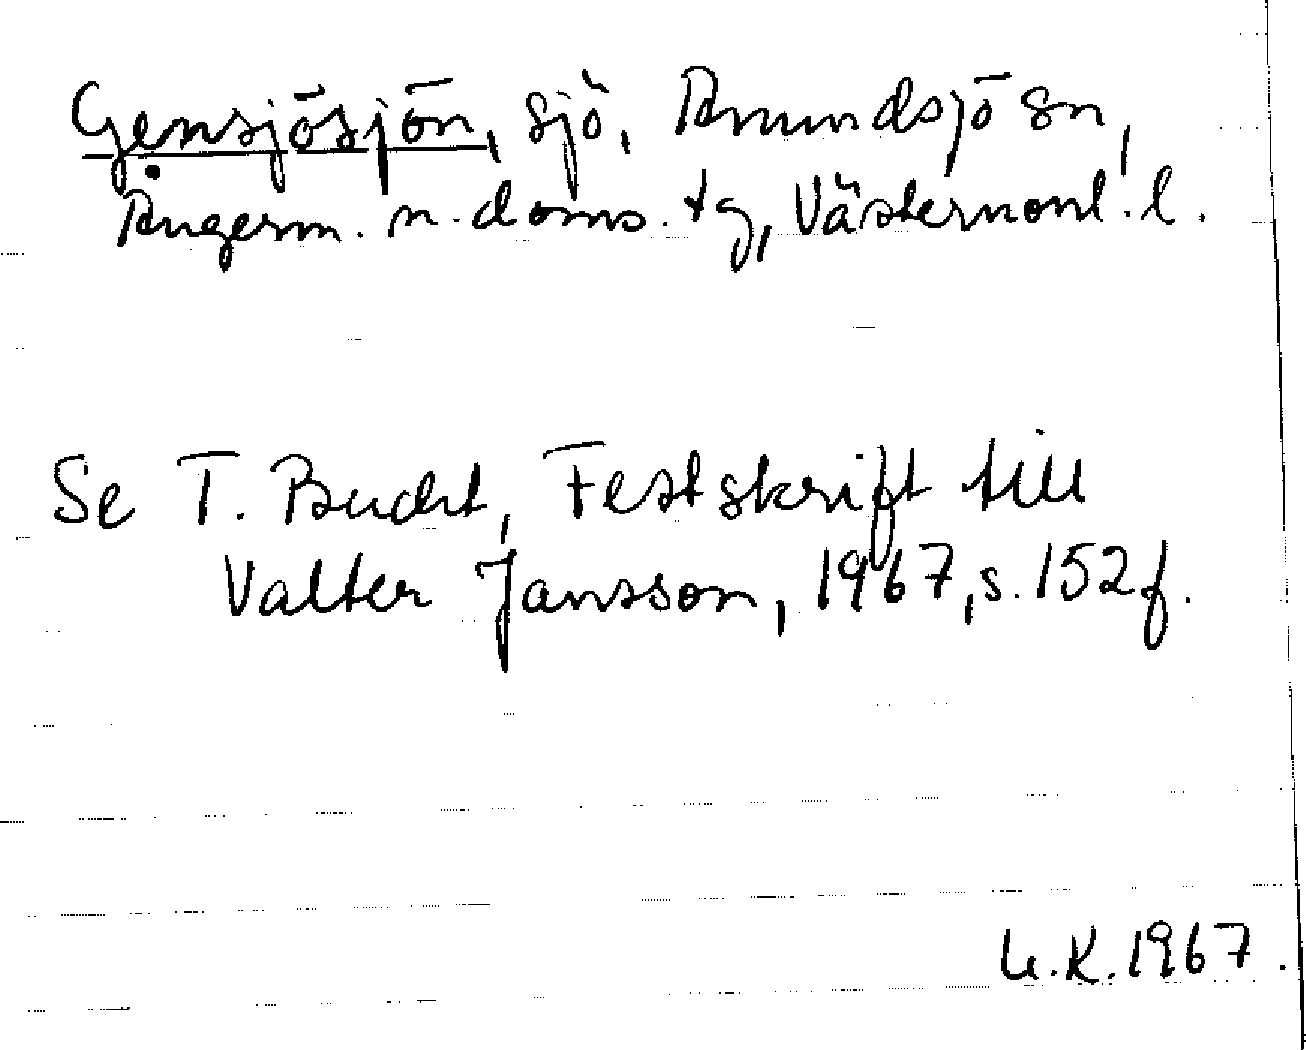 Gensjösjön, sjö, Anundsjö sn,
Ångerm. n. doms. tg, Västernorrl. l.
Se T. Bucht, Festskrift till
Valter Jansson, 1967, s. 152 f.
U.K. 1967.